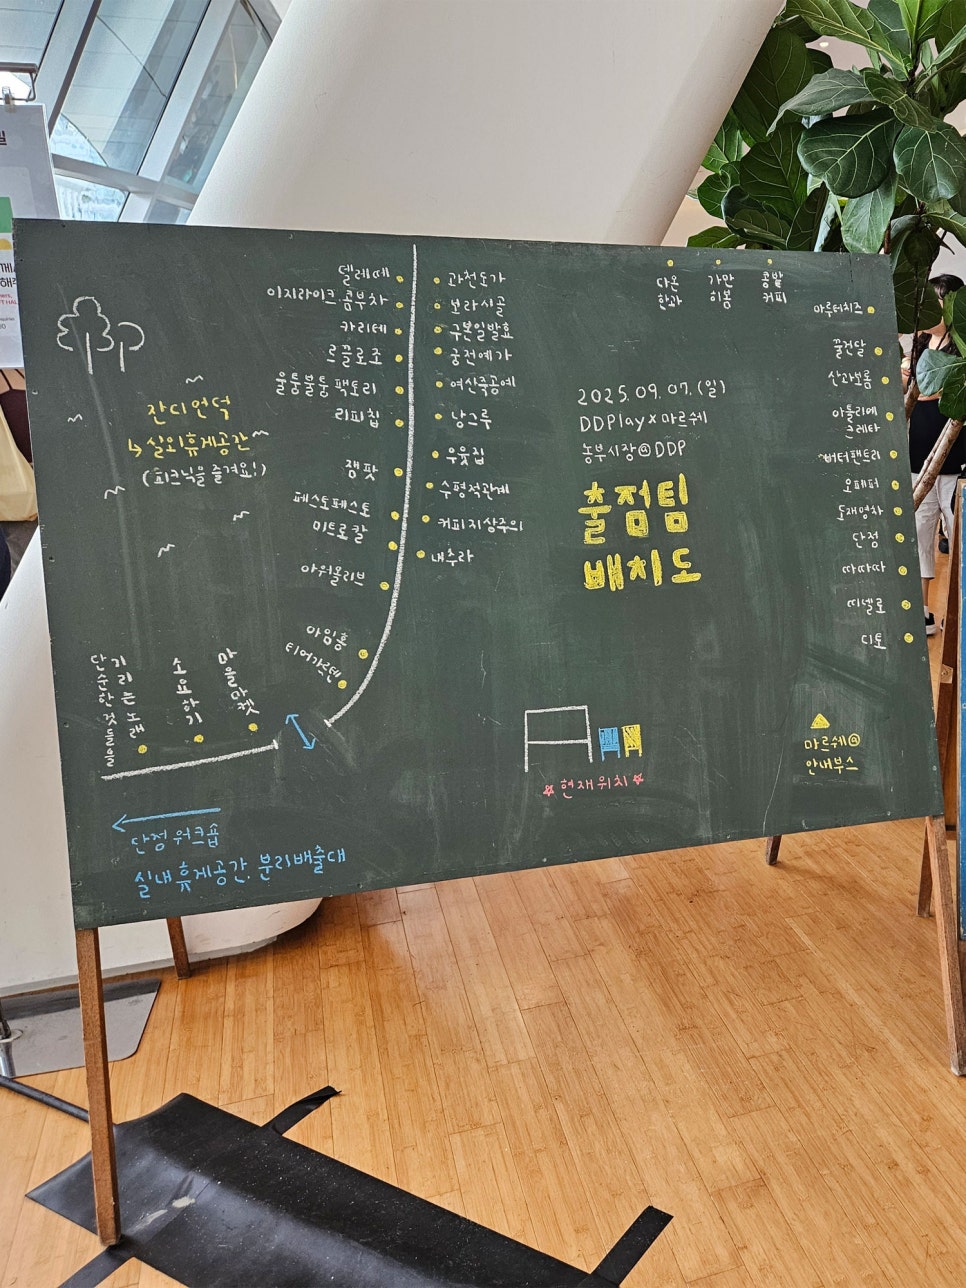 델레떼
이지라이크 콤부차
카리테
르끌로조
울퉁불퉁 팩토리
리피칩
잼팟
페스토페스토
미트로칼
아워올리브
아임홈
티어가르텐
과천도가
보라시골
구본일발효
궁전예가
여산죽공예
낭그루
우윳집
수평적관계
커피지상주의
내추라
다온
한과
가만
히봄
콩밭
커피
마루터치즈
꿀건달
산과보롬
아틀리에
크레타
버터팬트리
오페퍼
도재명차
단점
따따따
띠넬로
디토
잔디언덕
↳ 실외휴게공간
(피크닉을 즐겨요!)
2025.09.07.(일)
DDPlay×마르쉐
농부시장@DDP
출점팀
배치도
단순한것들을
기리는노래
소요하기
마을마켓
☆ 현재위치 ☆
마르쉐@
안내부스
단점 워크숍
실내휴게공간. 분리배출대